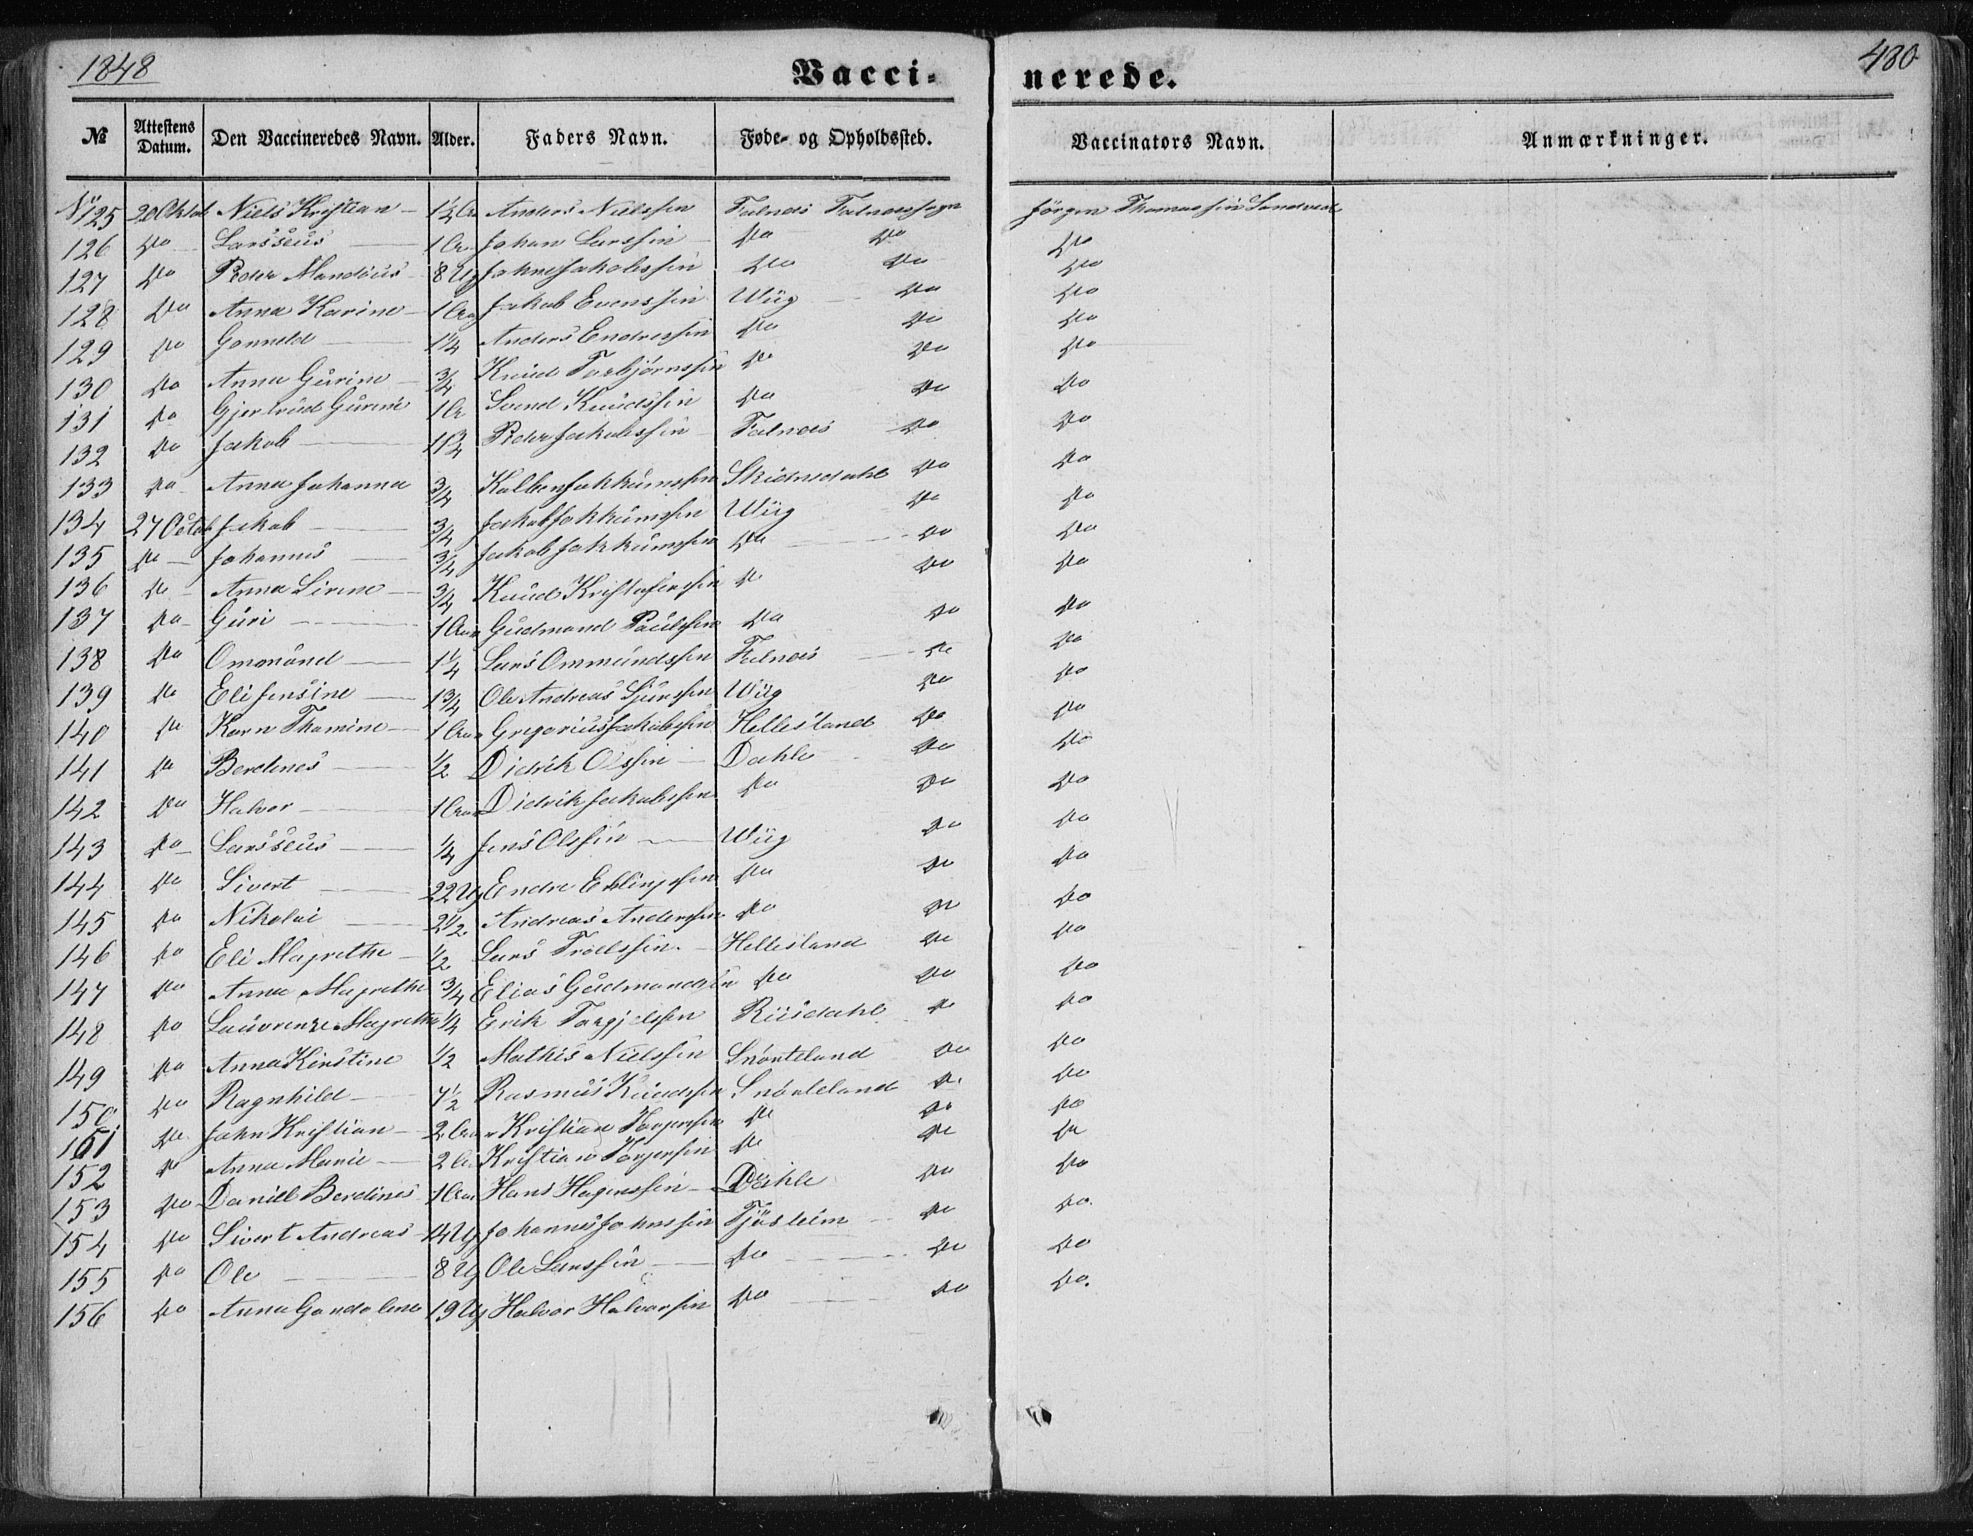 1848 Vacci- nerede. 480
№ Attestens Datum. Den Vaccineredes Navn. Alder. Faders Navn. Føde- og Opholdssted. Vaccinators Navn. Anmærkninger.
No 125 20 Oktob Niels Kristian 1½ Anders Nielssen Falnæs Falnæssogn Jörgen Thomassen Sandved
126 Do Larsseus 1 Johan Larssen Do Do Do
127 Do Peder Mandius 8 Ug Johne Jakobssen Do Do Do
128 Do Anna Karine 1 Jakob Evenssen Wiig Do Do
129 Do Gonneld 1¼ Anders Endressen Do Do Do
130 Do Anna Gurine ¾ Knud Torbjörnssen Do Do Do
131 Do Gjertrud Gurine 1 Svend Knudssen Do Do Do
132 Do Jakob 1¾ Peder Jakobssen Falnæs Do Do
133 Do Anna Johanna ¾ Kolben Jokkumssen Skiensdahl Do Do
134 27 Octob Jakob ¾ Jakob Jokkumssen Wiig Do Do
135 Do Johannes ¾ Jakob Jokkumssen Do Do Do
136 Do Anna Sirene ¾ Knud Kristofersen Do Do Do
137 Do Guri 1 Aar Gudmand Paulssen Do Do Do
138 Do Ommund 1¼ Lars Ommundssen Falnæs Do Do
139 Do Eli Jensine 1¾ Ole Andreas Sjurssen Wiig Do Do
140 Do Karn Thomine 1 Aar Gregorius Jakobssen Hellesland Do Do
141 Do Berdines ½ Didrik Olssen Dahle Do Do
142 Do Halvor 1 Aar Didrik Jakobssen Do Do Do
143 Do Larsseus ¼ Jens Olssen Wiig Do Do
144 Do Sivert 22 Ug Endre Erlingssen Do Do Do
145 Do Nikolai 2½ Andreas Anderssen Do Do Do
146 Do Eli Magrethe ½ Lars Troelssen Hellesland Do Do
147 Do Anna Magrethe ¾ Elias Gudmandsen Do Do Do
148 Do Laurenze Magrethe ¼ Erik Torgjelssen Riisdahl Do Do
149 Do Anna Kirstine ½ Mathis Nielssen Snörteland Do Do
150. Do Ragnhild 7½ Rasmus Knudssen Snörteland Do Do
151 Do John Kristian 2 Aar Kristian Torgerssen Do Do Do
152 Do Anna Marie 2 Kristian Torgerssen Do Do Do
153 Do Daniel Berdines 1 Aar Hans Hagenssen Dahle Do Do
154 Do Sivert Andreas 14 Ug Johannes Johnssen Tjösheim Do Do.
155 Do Ole 8 Ug Ole Larssen Do Do Do
156 Do Anna Gondolene 19 Ug Halvor Halvorsen Do Do Do.